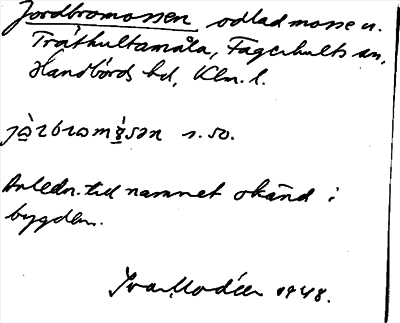 Jordbromossen odlad mosse u.
Tråthultamåla, Fagerhults sn,
Handbörds hd, Klm. l.
s. so.
Anledn. till namnet okänd i
bygden.
Ivar Modéer 1948.